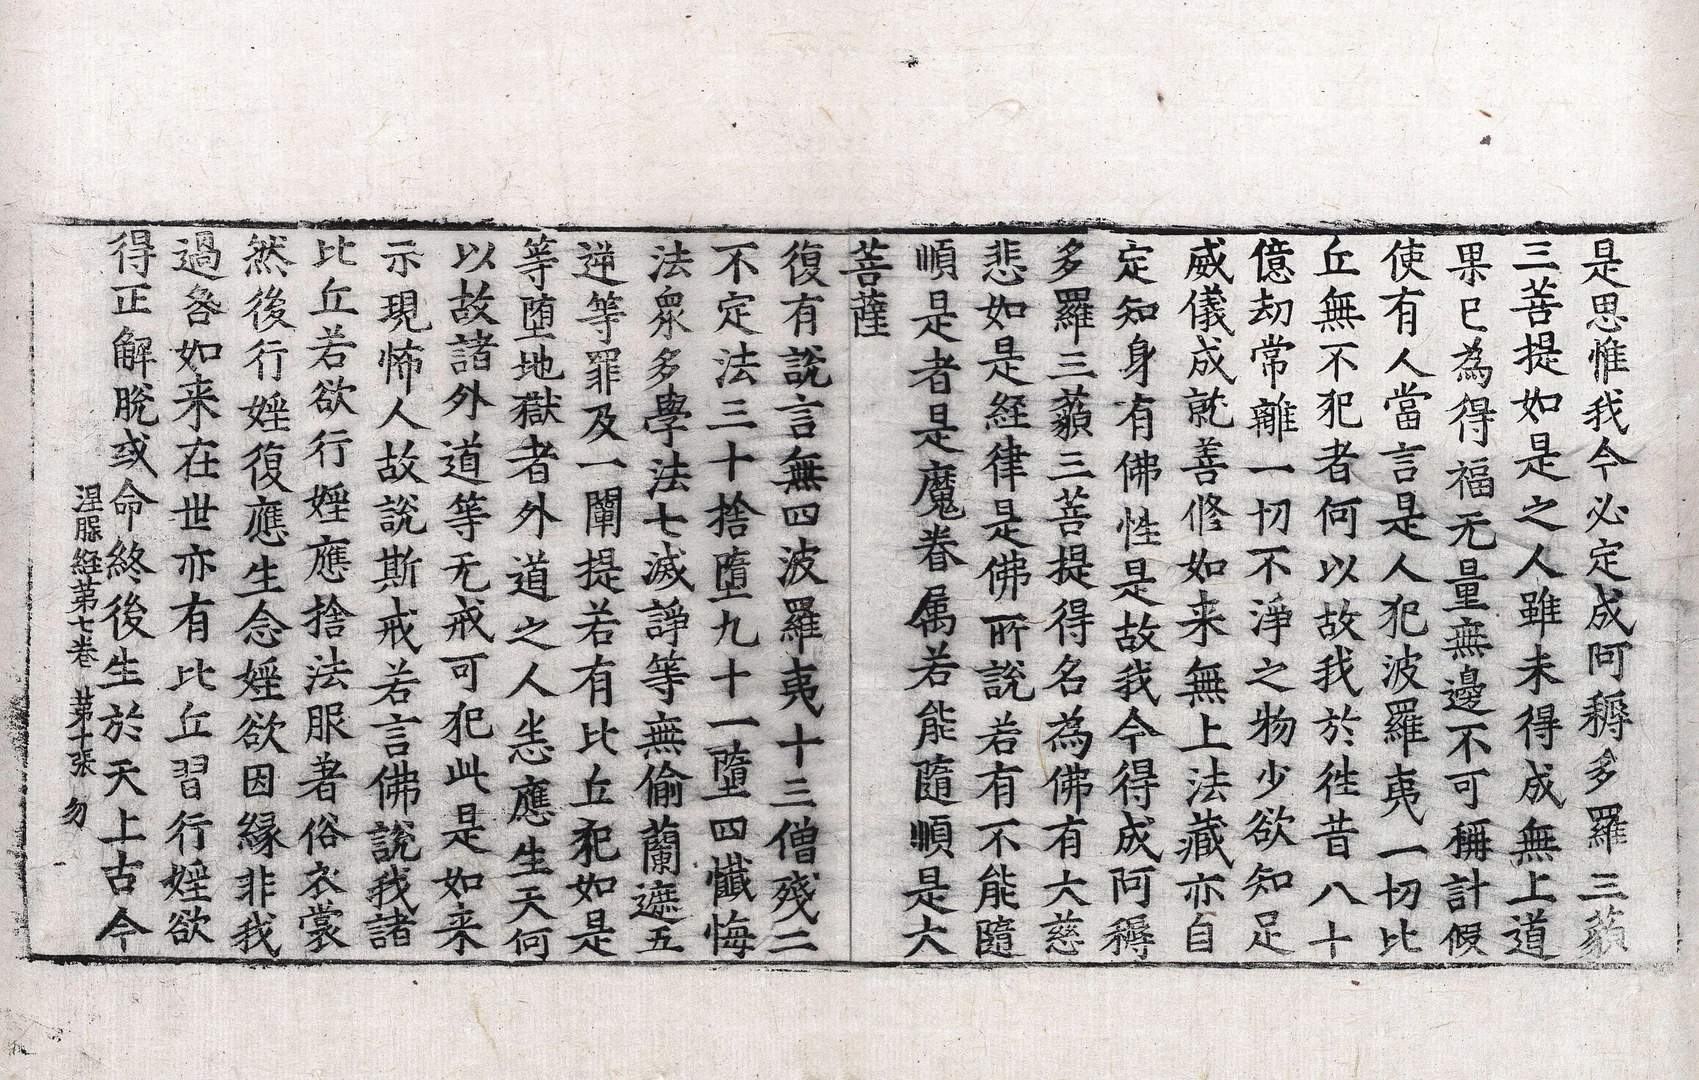 是思惟我今必定成阿耨多羅三藐
三菩提如是之人雖未得成無上道
果已為得福无量無邊不可稱計假
使有人當言是人犯波羅夷一切比
丘無不犯者何以故我於往昔八十
億劫常離一切不淨之物少欲知足
威儀成就善修如来無上法藏亦自
定知身有佛性是故我今得成阿耨
多羅三藐三菩提得名為佛有大慈
悲如是經律是佛所說若有不能隨
順是者是魔眷属若能隨順是大
菩薩
復有說言無四波羅夷十三僧殘二
不定法三十捨墮九十一墮四懺悔
法衆多學法七滅諍等無偷蘭遮五
逆等罪及一闡提若有比丘犯如是
等墮地獄者外道之人悉應生天何
以故諸外道等无戒可犯此是如来
示現怖人故說斯戒若言佛說我諸
比丘若欲行婬應捨法服著俗衣裳
然後行婬復應生念婬欲因緣非我
過咎如来在世亦有比丘習行婬欲
得正解脫或命終後生於天上古今
涅槃経第七卷 第十張 勿